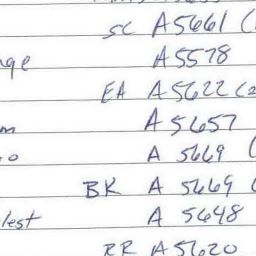 SC A5661 (
A5578
EA A5622 (2
A5657
A 5669 (
BK A 5669 (
lest A 5648
RR A5620